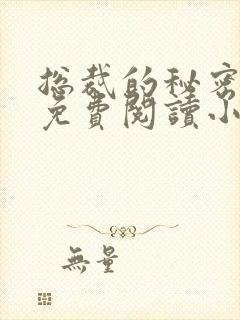 總裁的秘密
免費閱讀小
無量